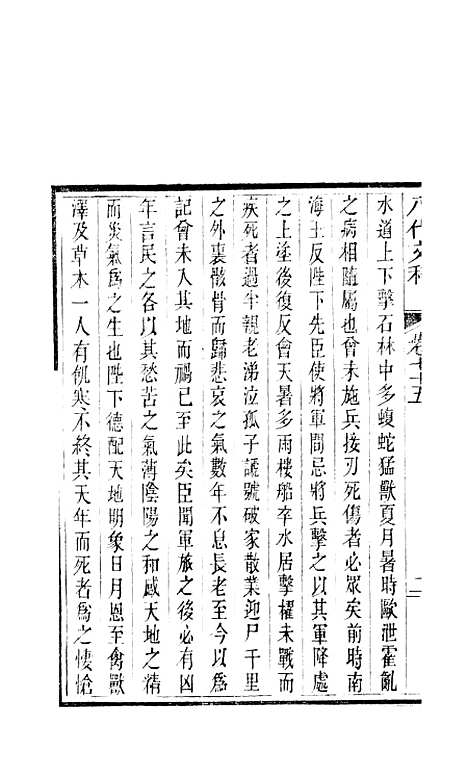 卷七十五
二
水道上下擊石林中多蝮蛇猛獸夏月暑時歐泄霍亂
之病相隨屬也曾未施兵接刃死傷者必眾矣前時南
海王反陛下先臣使將軍間忌將兵擊之以其軍降處
之上塗後復反會天暑多雨樓船卒水居擊櫂未戰而
疾死者過半親老涕泣孤子謕號破家散業迎尸千里
之外裹骸骨而歸悲哀之氣數年不息長老至今以為
記曾未入其地而禍已至此矣臣聞軍旅之後必有凶
年言民之各以其愁苦之氣薄陰陽之和感天地之精
而災氣為之生也陛下德配天地明象日月恩至禽獸
澤及草木一人有飢寒不終其天年而死者為之悽愴